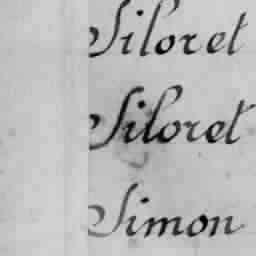 Siloret
Siloret
Simon